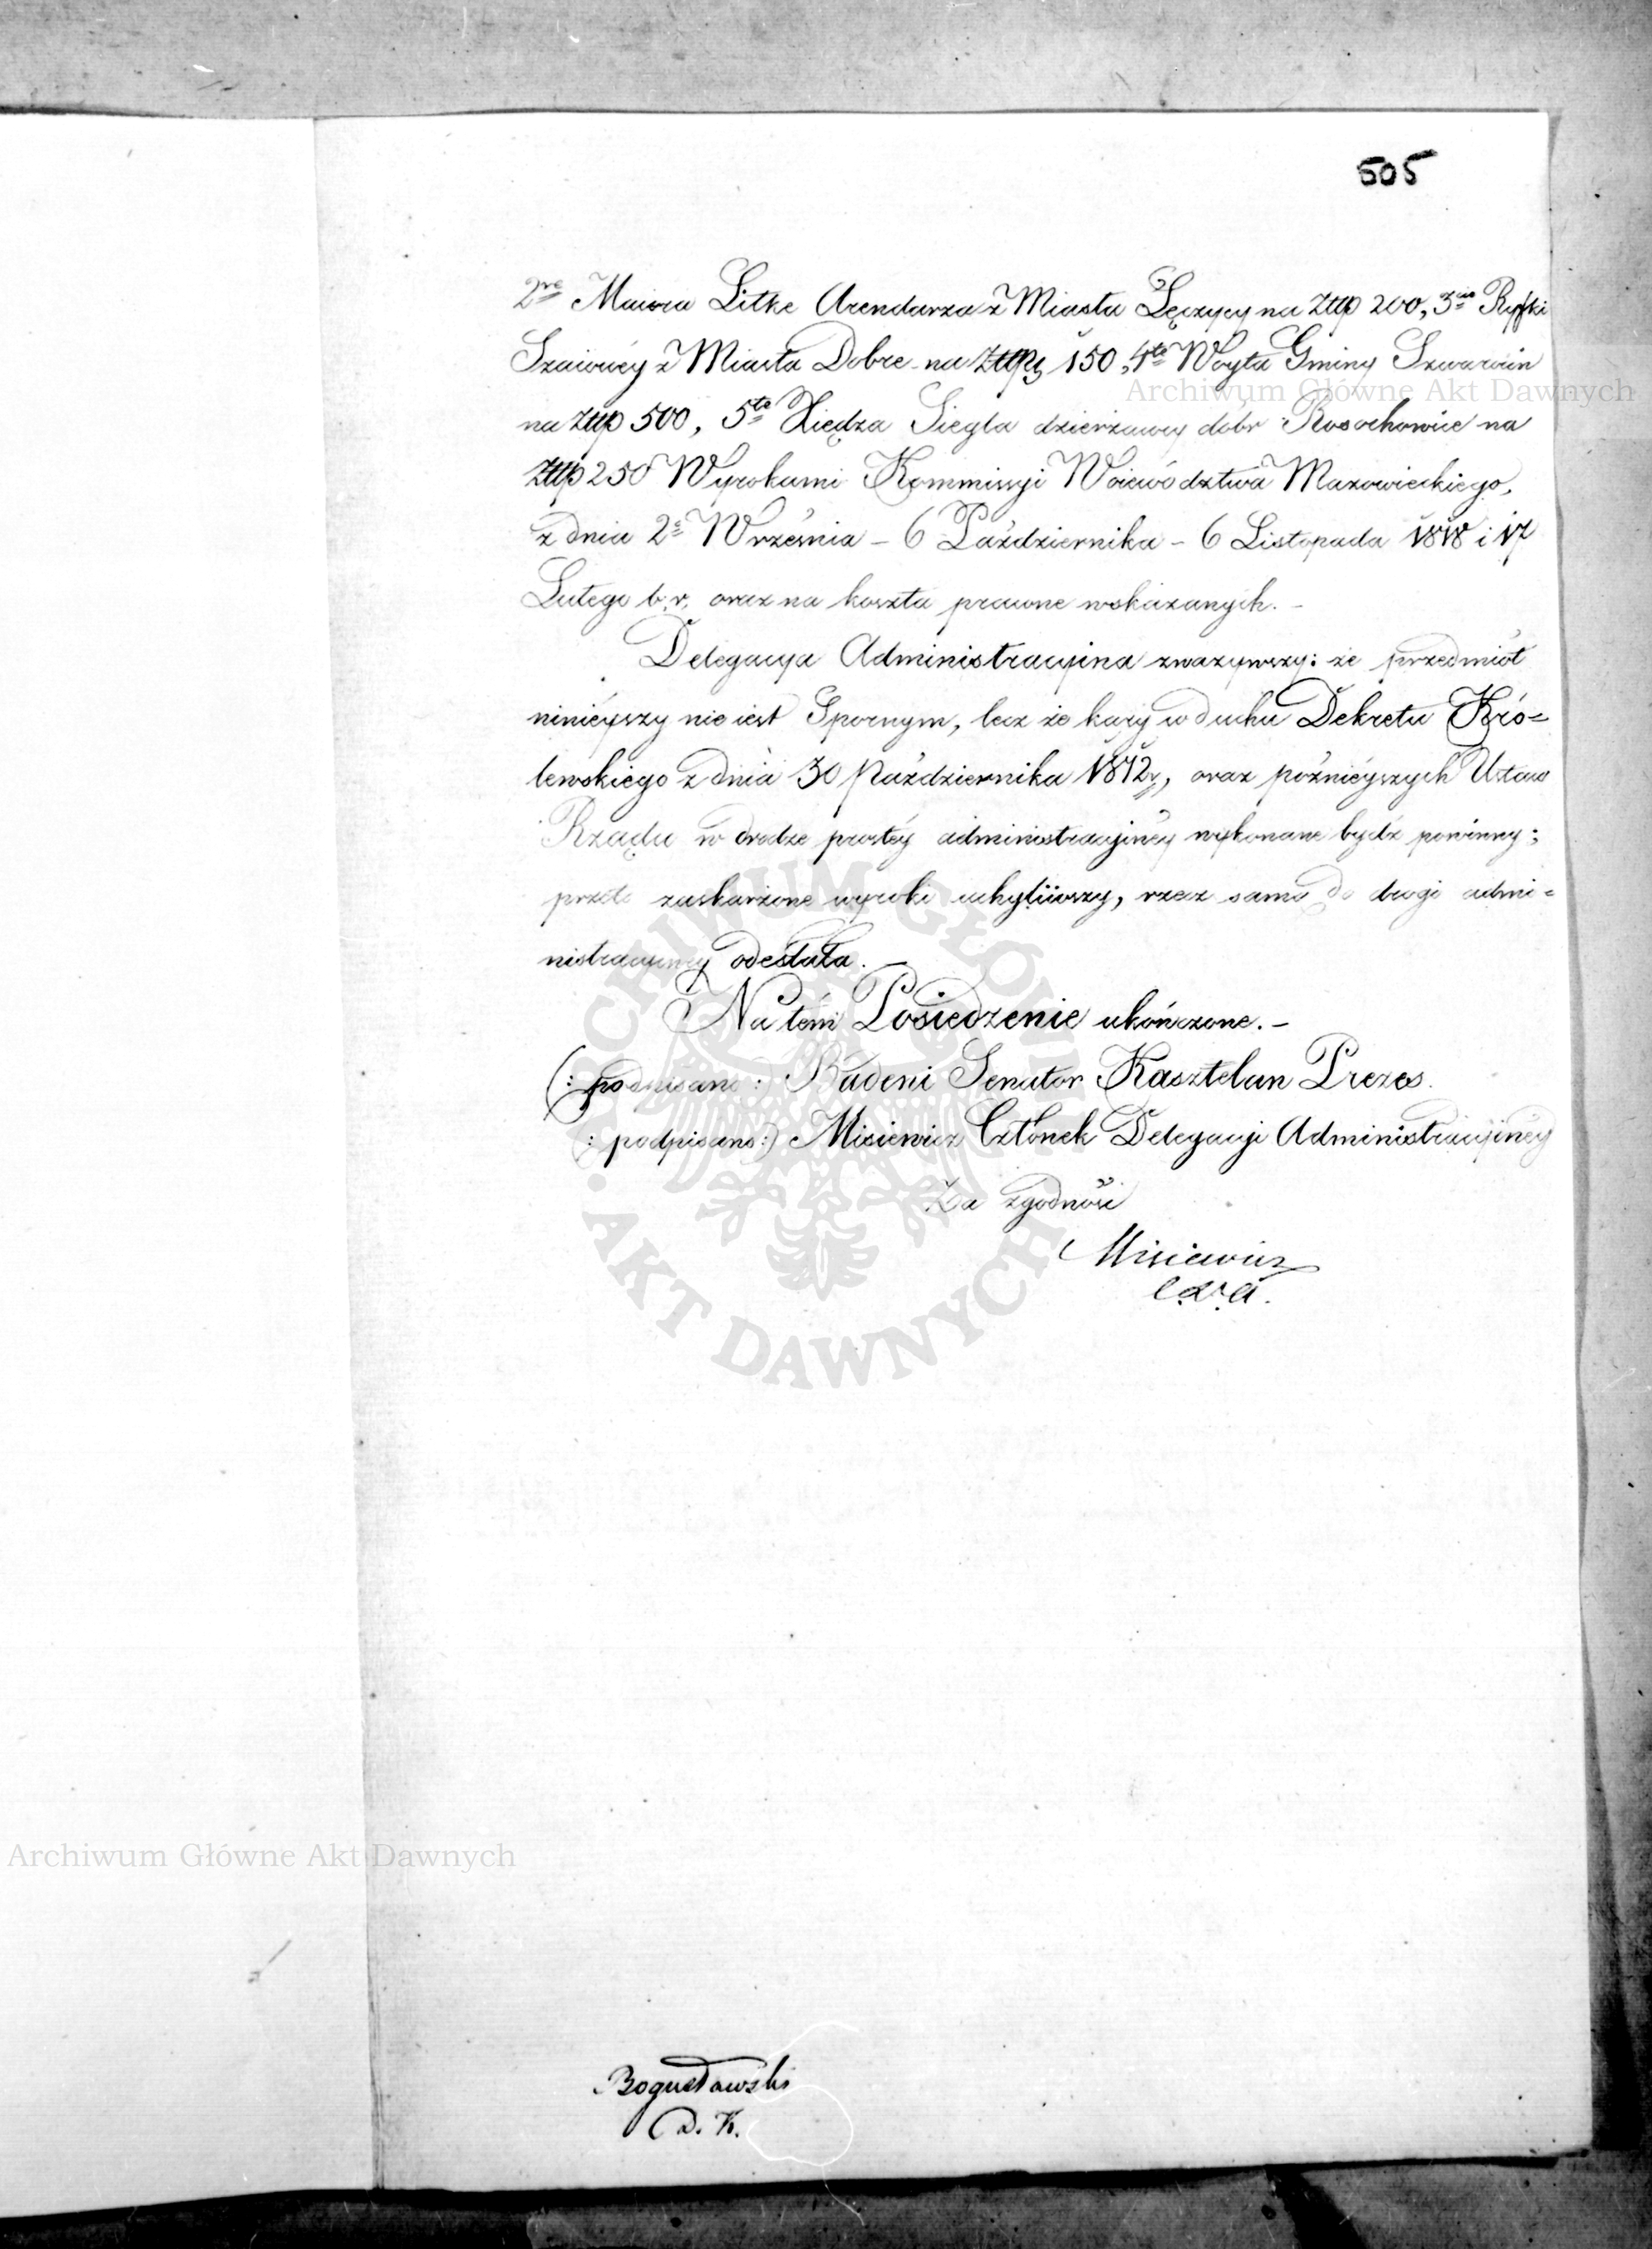 505
2re Maiora Litke Arendarza z Miasta Łęczycy na Złłp 200, 3cio Ryfki
Szaiowéy z Miasta Dobre na Złłp 150, 4to Woyta Gminy Szwarcin
na Złłp 500, 5to Xiędza Siegla dzierżawcy dóbr Rosochowice na
Złłp 250 Wyrokami Kommissyi Woiewództwa Mazowieckiego,
z dnia 2o Września – 6 Października – 6 Listopada 1818 i 17
Lutego b. r. oraz na koszta prawne wskazanych. –
Delegacya Administracyina zważywszy: że przedmiot
ninieyszy nie iest Spornym, lecz że kary w duchu Dekretu Kró=
lewskiego z dnia 30 Października 1812 r, oraz poźniéyszych Ustaw
Rządu w drodze prostéy administracyinéy wykonane bydź powinny;
przeto zaskarżone wyroki uchyliwszy, rzecz samą do drogi admi=
nistracyiney odesłała. –
Na tém Posiedzenie ukończone. –
(: podpisano :) Badeni Senator Kasztelan Prezes.
(: podpisano :) Misiewicz Członek Delegacyi Administracyinéy
Za zgodność
Misiewicz
C. D. A.
Bogusławski
D. K.
Archiwum Główne Akt Dawnych
Archiwum Główne Akt Dawnych
ARCHIWUM GŁÓWNE
AKT DAWNYCH